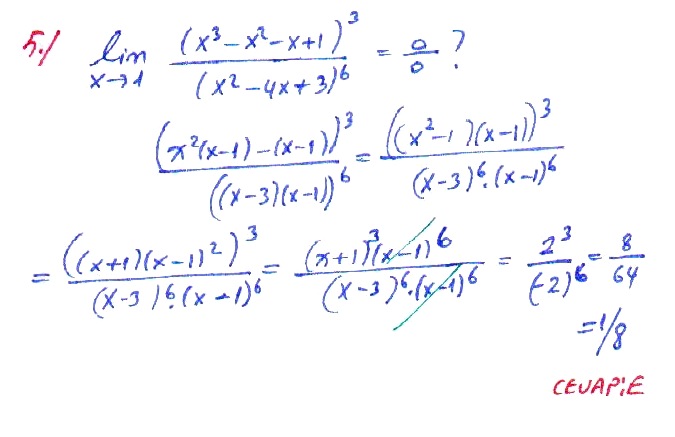 5./ lim x→1 (x³-x²-x+1)³ / (x²-4x+3)⁶ = 0/0 ?
(x²(x-1)-(x-1))³ / ((x-3)(x-1))⁶ = ((x²-1)(x-1))³ / (x-3)⁶.(x-1)⁶
= ((x+1)(x-1)²)³ / (x-3)⁶.(x-1)⁶ = (x+1)³(x-1)⁶ / (x-3)⁶.(x-1)⁶ = 2³ / (-2)⁶ = 8/64
= 1/8
CEVAP:E